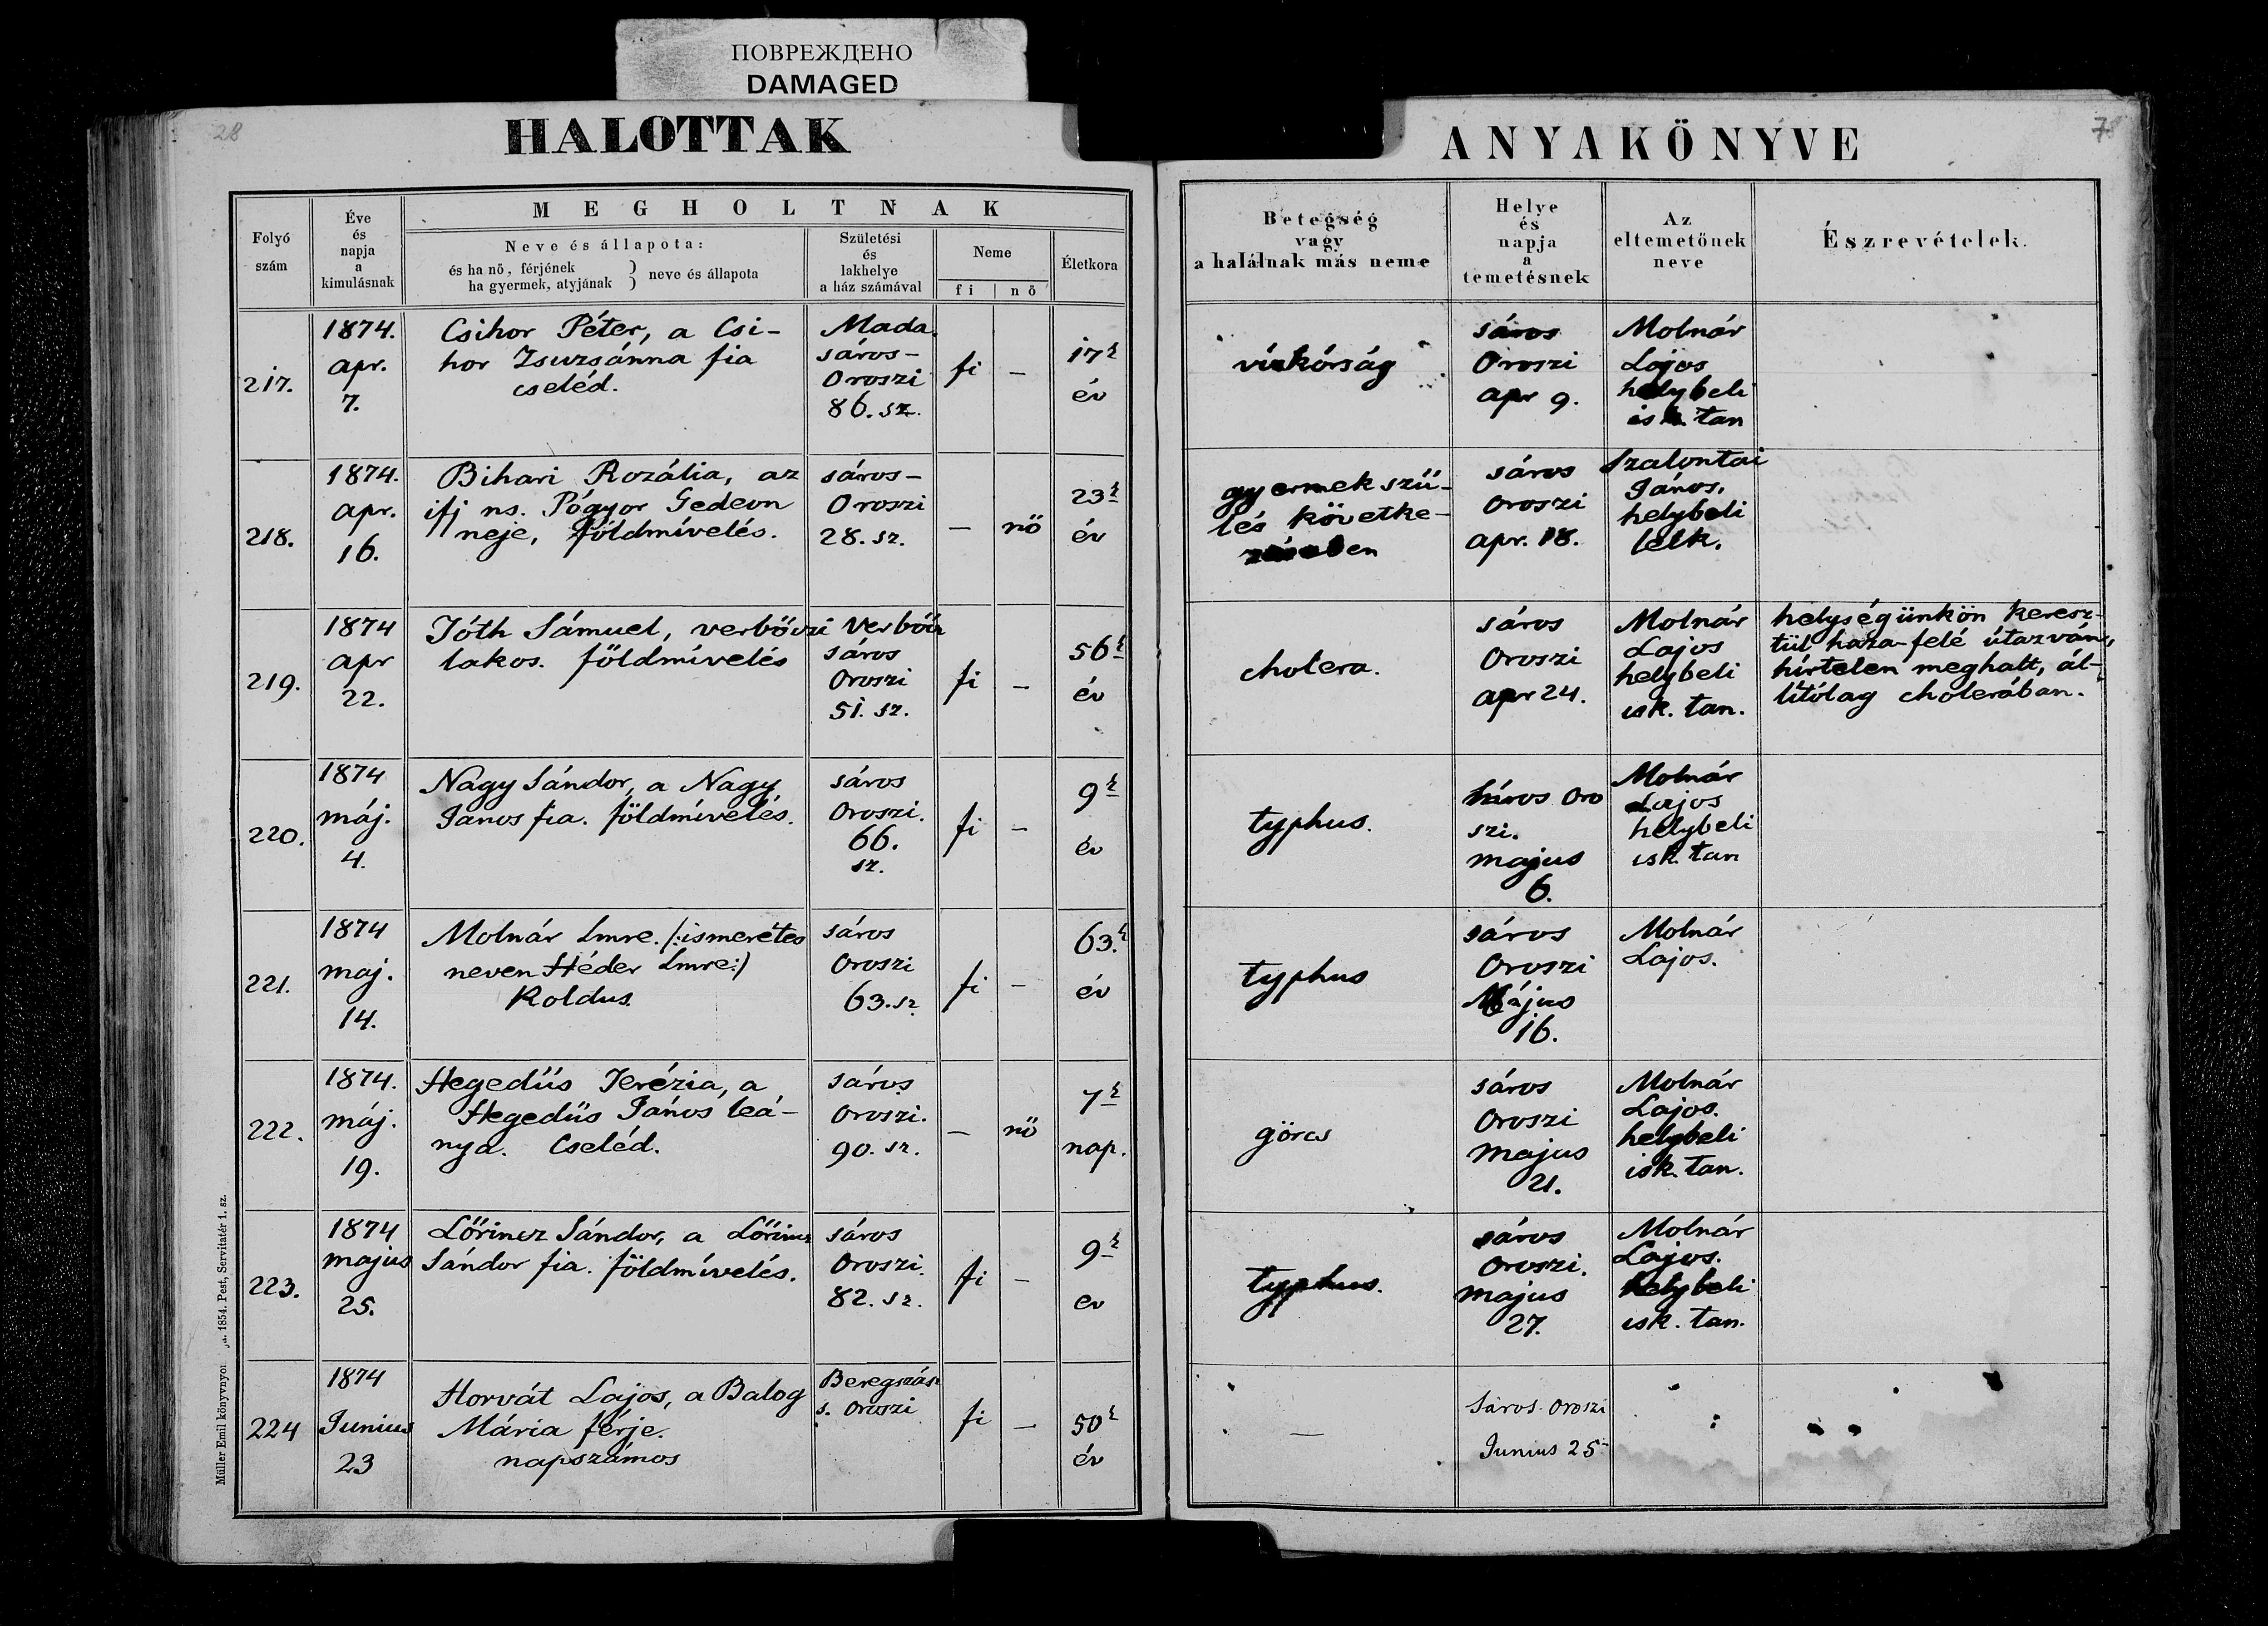 ПОВРЕЖДЕНО
DAMAGED
28
HALOTTAK
Folyó
szám
Éve
és
napja
a
kimulásnak
MEGHOLTNAK
Neve és állapota:
és ha nö, férjének
ha gyermek, atyjának
neve és állapota
Születési
és
lakhelye
a ház számával
Neme
fi
nö
Életkora
217.
1874.
apr.
7.
Csihor Péter, a Csi-
hor Zsuzsánna fia
cseléd.
Mada.
sáros-
Oroszi
86. sz.
fi
—
17
év
218.
1874.
apr.
16.
Bihari Rozália, az
ifj ns. Pógyor Gedeon
neje, földmívelés.
sáros-
Oroszi
28. sz.
—
nő
23
év
219.
1874
apr
22.
Tóth Sámuel, verbőczi
lakos. földmívelés
sáros
Oroszi
51. sz.
fi
—
56
év
220.
1874
máj.
4.
Nagy Sándor, a Nagy
János fia. földmívelés.
sáros
Oroszi.
66.
sz.
fi
—
9
év
221.
1874
maj.
14.
Molnár Imre. /:ismerétes
neven Héder Imre:/
Koldus.
sáros
Oroszi
63. sz
fi
—
63.
év
222.
1874.
máj.
19.
Hegedüs Terézia, a
Hegedüs János leá-
nya. Cseléd.
sáros
Oroszi.
90. sz.
—
nő
7
nap.
223.
1874
majus
25.
Lőrincz Sándor, a Lőrincz
Sándor fia. földmívelés.
sáros
Oroszi.
82. sz.
fi
—
9
ev
224
1874
Junius
23
Horvát Lajos, a Balog
Mária férje.
napszámos
Beregszász
s. Oroszi
fi
—
50
év
1854. Pest, Servitatér 1. sz.
Müller Emil könyvnyo
ANYAKÖNYVE
Betegség
vagy
a halálnak más neme
Helye
és
napja
a
temetésnek
Az
eltemetőnek
neve
Észrevételek.
vízkórság
sáros
Oroszi
apr 9.
Molnár
Lajos
helybeli
isk. tan
gyermekszü-
lés követke-
sáros
Oroszi
apr. 18.
Szalontai
János,
helybeli
lelk.
cholera.
sáros
Oroszi
apr 24.
Molnár
Lajos
helybeli
isk. tan.
helységünkön keresz-
tül haza-felé útazván,
hírtelen meghalt, ál-
lítólag cholerában.
typhus.
sáros Oro
szi.
majus
6.
Molnár
Lajos
helybeli
isk. tan
typhus
sáros
Oroszi
Május
16.
Molnár
Lajos.
görcs
sáros
Oroszi
majus
21.
Molnár
Lajos.
helybeli
isk. tan.
typhus.
sáros
Oroszi.
május
27.
Molnár
Lajos.
helybeli
isk. tan.
—
Sáros-Oroszi
Junius 25